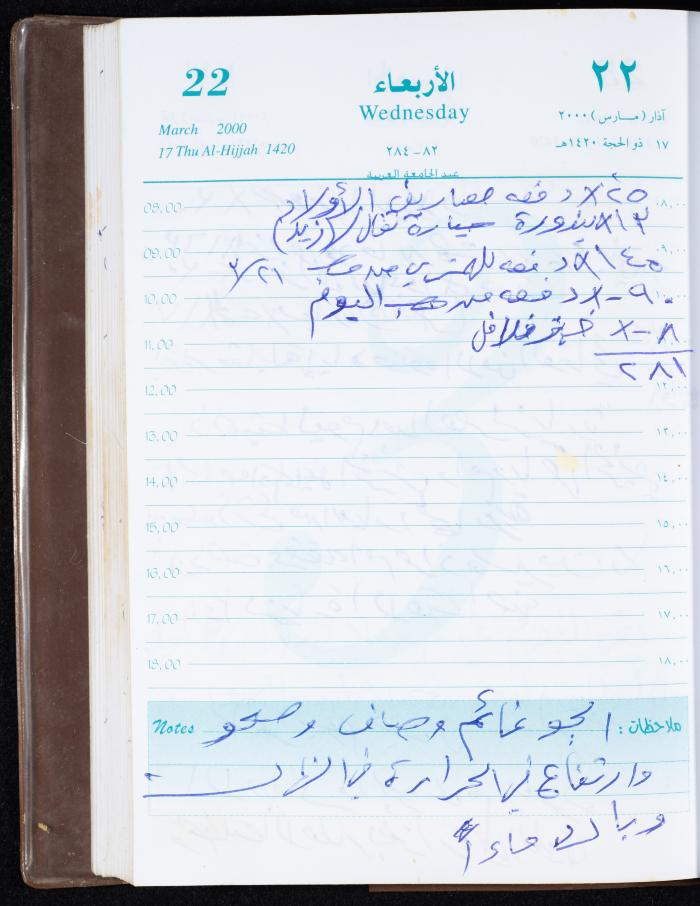 22 الأربعاء ٢٢
Wednesday
March 2000 آذار (مارس) ٢٠٠٠
17 Thu Al-Hijjah 1420 ٨٢-٢٨٤ ١٧ ذو الحجة ١٤٢٠هـ
عيد الجامعة العربية
08.00 ٢٥ X دفعه مصاريف الأولاد ٨,٠٠
١٣ X بندورة سيارة نقال
09.00 ٩,٠٠
١٤٥ X دفعه من حساب ٣/٢١
10.00 ٩٠ - X دفعه من حساب اليوم ١٠,٠٠
11.00 ٨ - X خبز فلافل
٢٨١
12.00 ١٢,٠٠
13.00 ١٣,٠٠
14.00 ١٤,٠٠
15.00 ١٥,٠٠
16.00 ١٦,٠٠
17.00 ١٧,٠٠
18.00 ١٨,٠٠
Notes ملاحظات: الجو غائم وصاف وصحو
وارتفاع في الحرارة في النهار
وبارد مساءاً